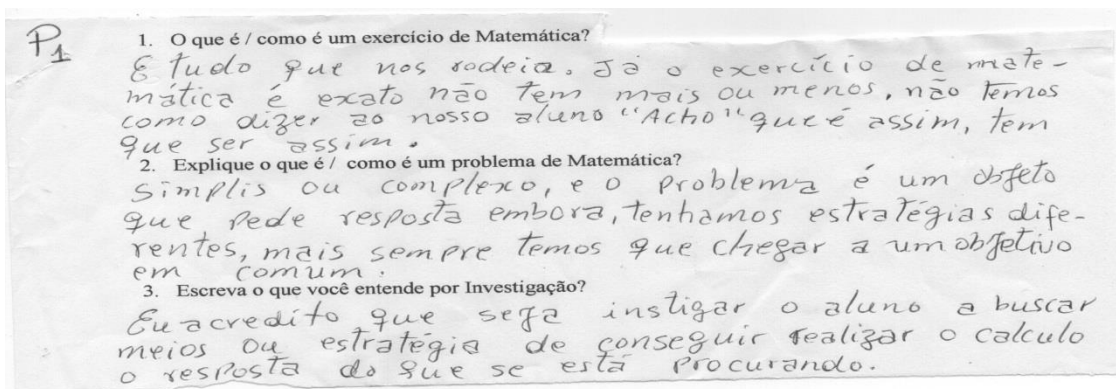 P1
1. O que é / como é um exercício de Matemática?
É Tudo que nos rodeia. Já o exercício de mate-
mática é exato não tem mais ou menos, não temos
como dizer ao nosso aluno "Acho" que é assim, tem
que ser assim.
2. Explique o que é / como é um problema de Matemática?
Simplis ou complexo, e o problema é um objeto
que pede resposta embora, tenhamos estratégias dife-
rentes, mais sempre temos que chegar a um objetivo
em comum.
3. Escreva o que você entende por Investigação?
Eu acredito que seja instigar o aluno a buscar
meios ou estratégia de conseguir realizar o calculo
o resposta do que se está procurando.